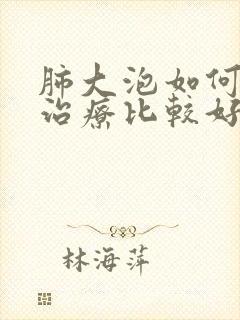 肺大泡如何
治療比較好
林海萍